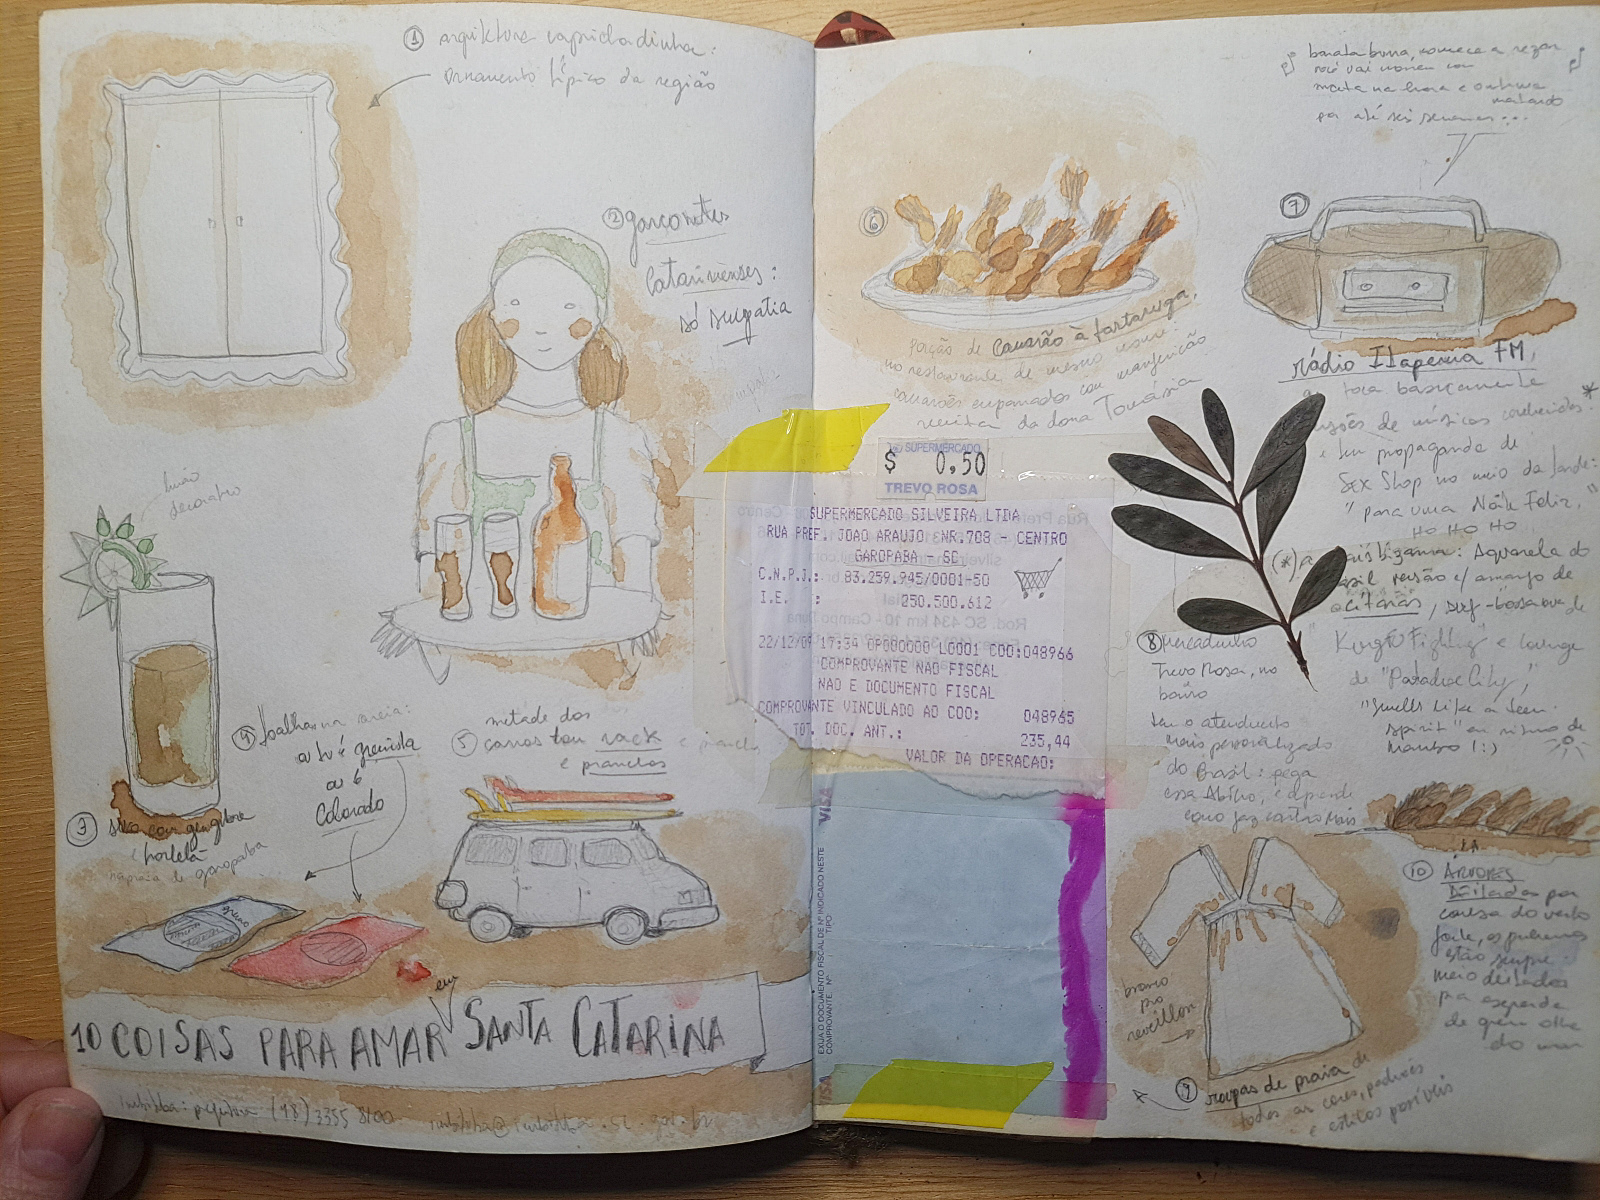 1 arquitetura caprichadinha:
ornamento típico da região
2 garçonetes
Catarinenses:
só simpatia
limão
decorativo
3 suco com gengibre
e hortelã
na praia de garopaba
4 toalhas na areia:
ou tu é gremista
ou é
Colorado
grêmio
metade dos
5 carros tem rack e prancha
e pranchas
10 COISAS PARA AMAR em SANTA CATARINA
(48) 3355 8100
barata burra, comece a rezar
você vai morrer com
mata na hora e continua
matando
por até seis semanas...
6
porção de Camarão à tartaruga,
no restaurante de mesmo nome
camarões empanados com manjericão
receita da dona Tomásia
7
rádio Itapema FM,
toca basicamente
versões de músicas conhecidas*
e tem propaganda de
Sex Shop no meio da tarde:
"para uma Noite Feliz,
HO HO HO"
(*) a mais bizarra: Aquarela do
Brasil versão c/ arranjo de
cítaras, surf-bossa nova de
"Kung Fu Fighting" e lounge
de "Paradise City",
"Smells Like a Teen
Spirit" em ritmo de
mambo! :)
SUPERMERCADO
$ 0,50
TREVO ROSA
SUPERMERCADO SILVEIRA LTDA
RUA PREF. JOAO ARAUJO, NR.708 - CENTRO
GAROPABA - SC
C.N.P.J.: 83.259.945/0001-50
I.E. : 250.500.612
22/12/09 17:34 OP000000 L0001 COO:048966
COMPROVANTE NAO FISCAL
NAO E DOCUMENTO FISCAL
COMPROVANTE VINCULADO AO COO: 048965
TOT. DOC. ANT.: 235,44
VALOR DA OPERACAO:
VISA
EXIJA O DOCUMENTO FISCAL DE Nº INDICADO NESTE
COMPROVANTE Nº TIPO
VISA
8 mercadinho
Trevo Rosa, no
bairro
tem o atendimento
mais personalizado
do Brasil: pega
essa Abílio, e aprende
como faz contra mais
branco
pro
réveillon
9 roupas de praia de
todas as cores, padrões
e estilos possíveis
10 ÁRVORES
Deitadas por
causa do vento
forte, os pinheiros
estão sempre
meio deitados
pra esquerda
de quem olha
do mar